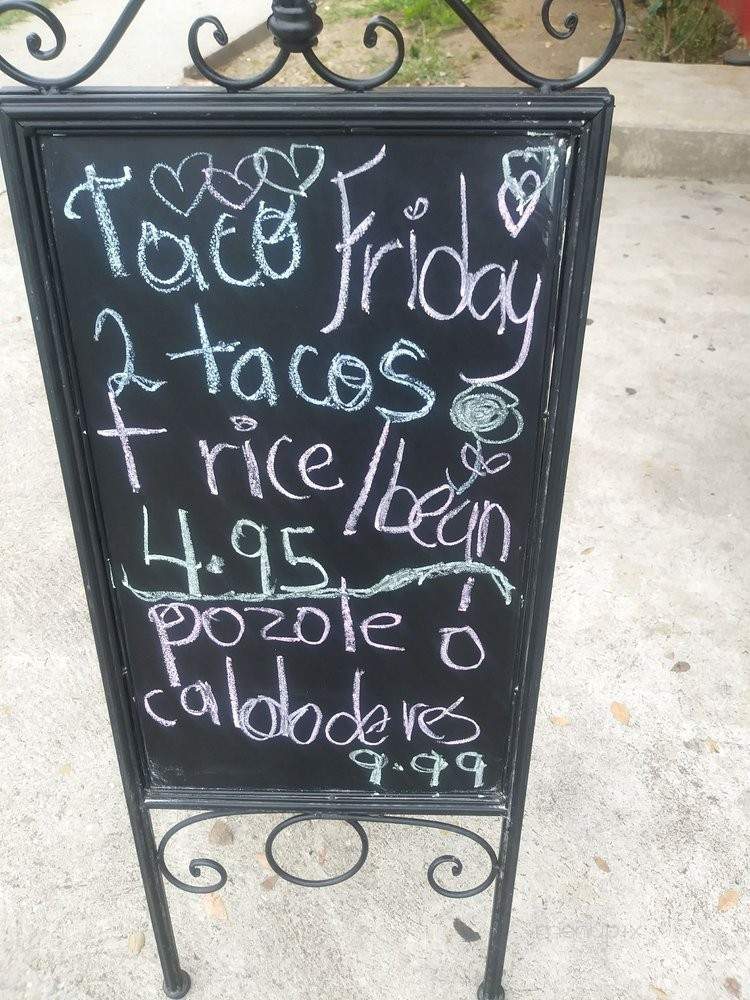 Taco Friday
2 tacos
+ rice/bean
4.95
pozole ó
caldo de res
9.99
menupix